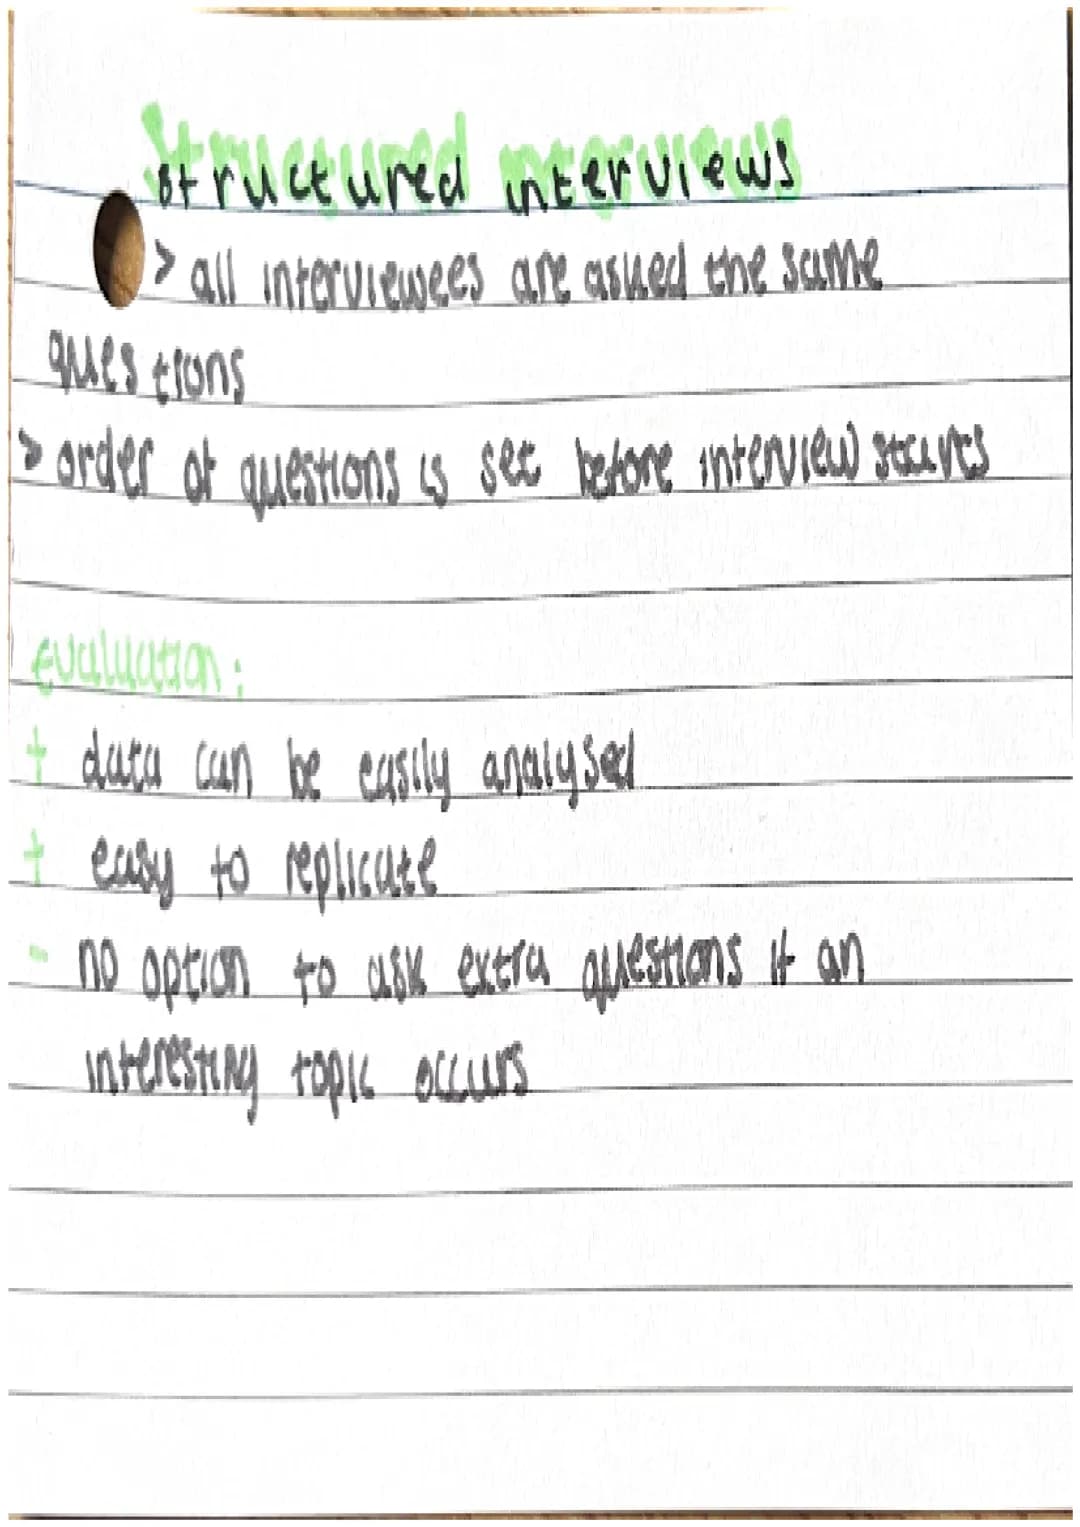 structured interviews
> all interviewees are asked the same
questions
> order of questions is set before interview starts
evaluation:
+ data can be easily analysed
+ easy to replicate
- no option to ask extra questions if an
interesting topic occurs